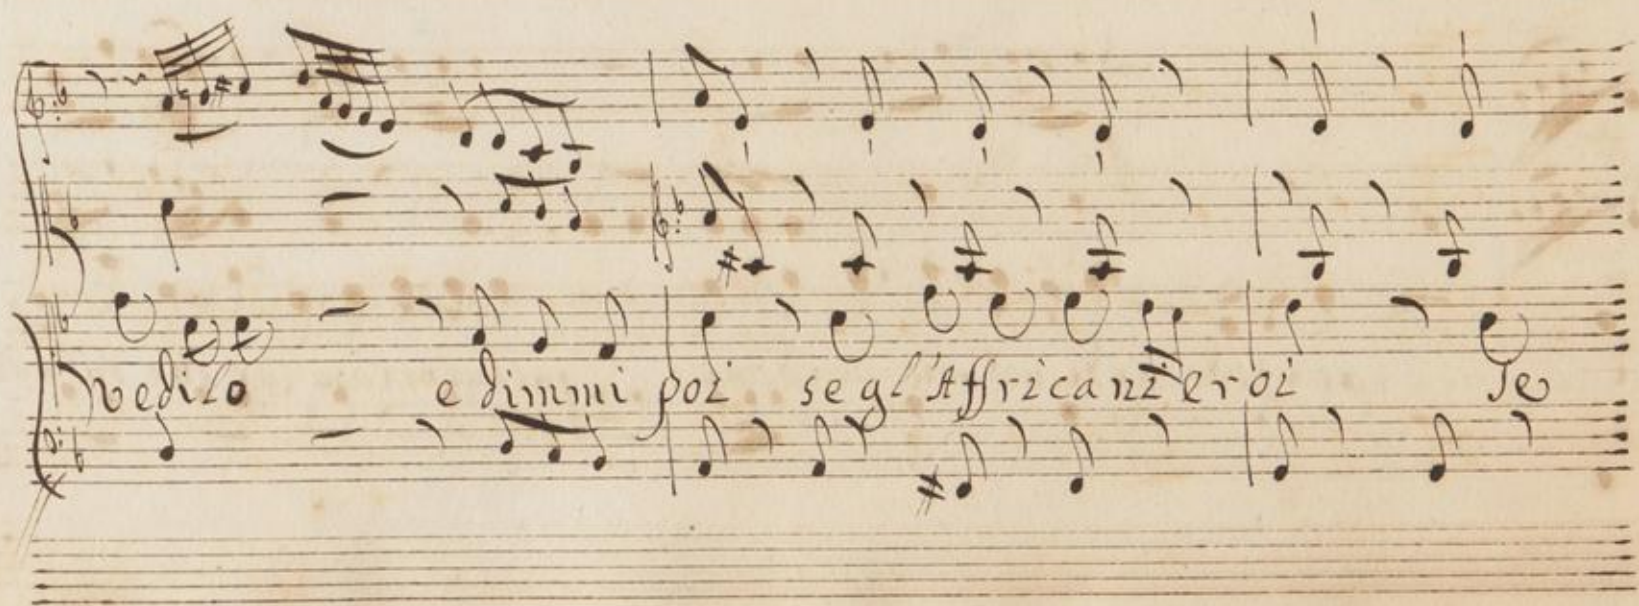 vedilo e dimmi poi se gl'Affricani eroi se